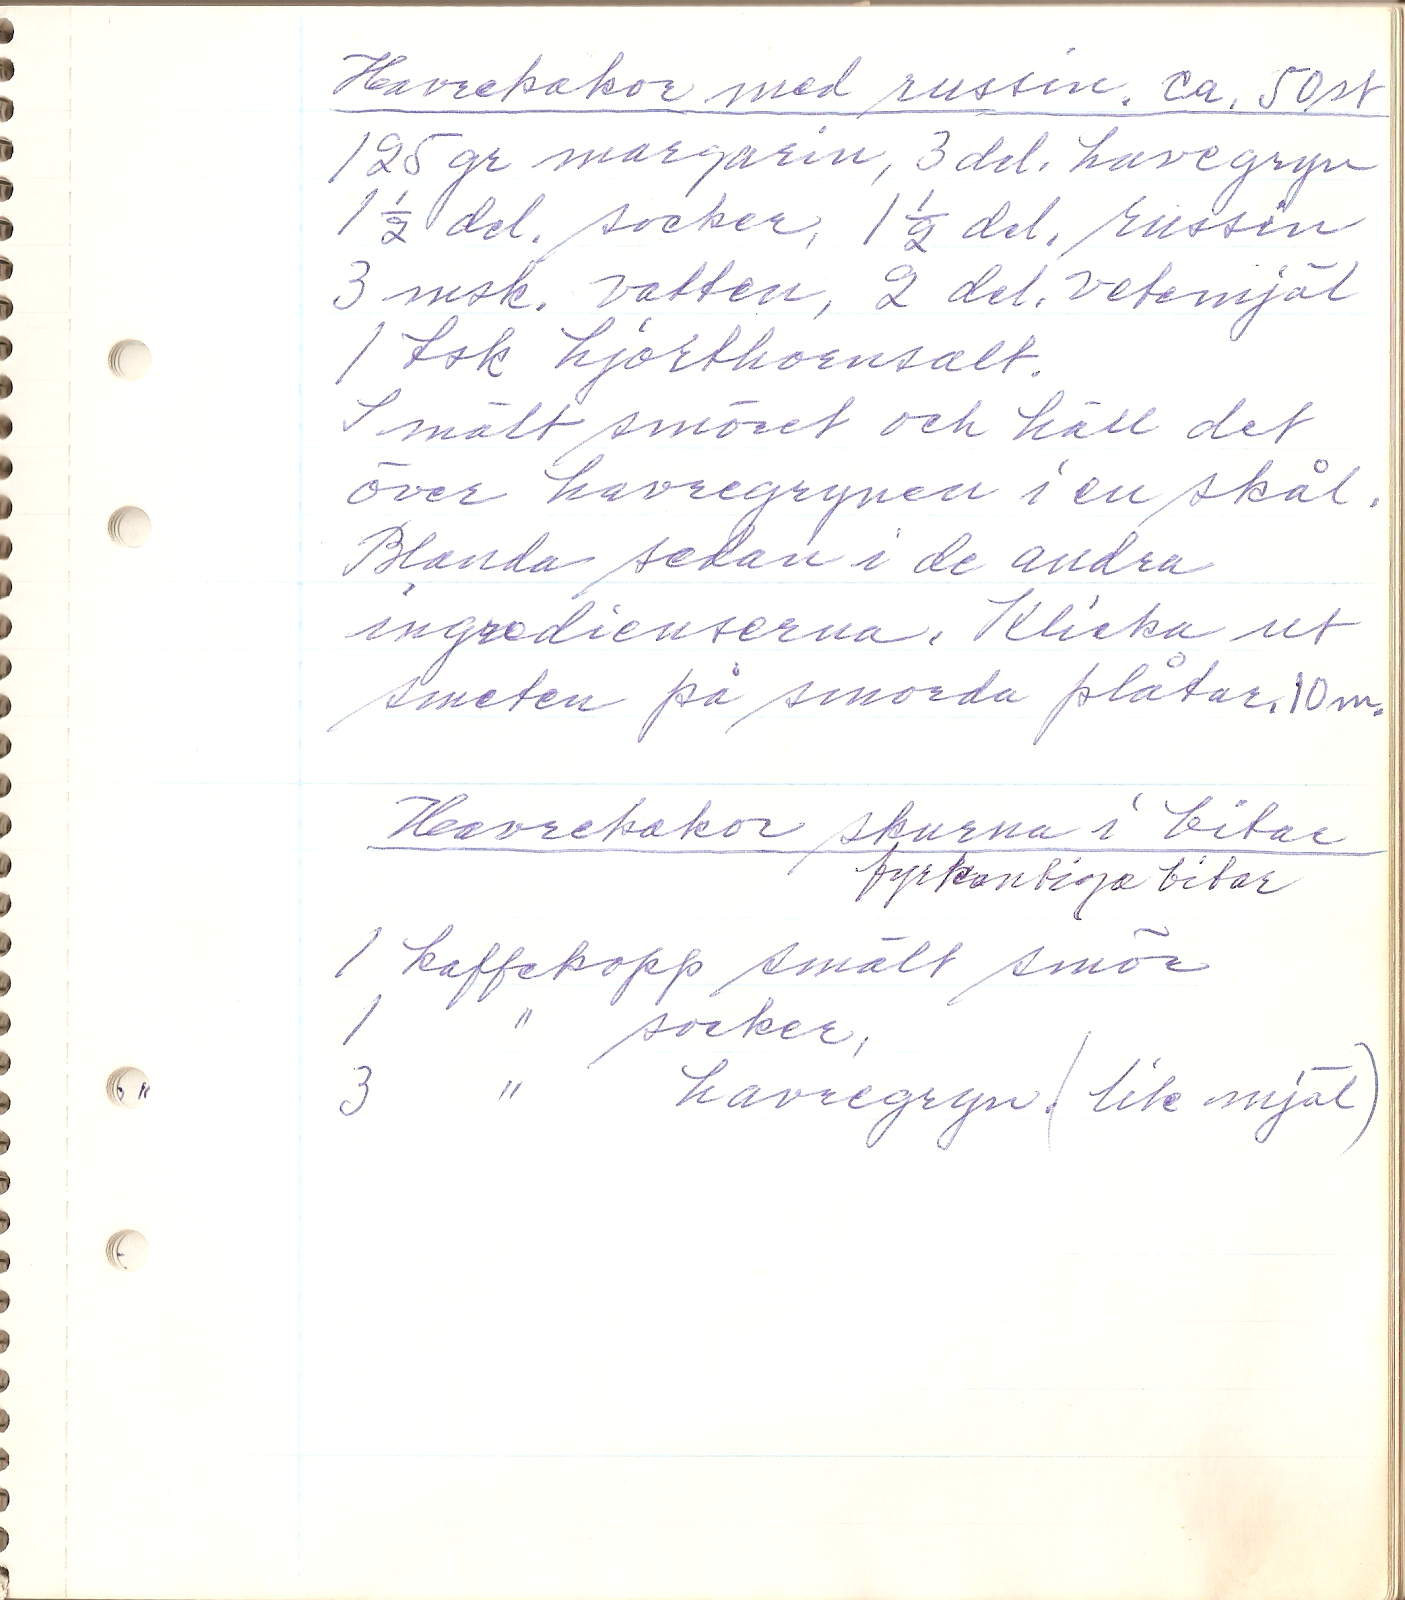 Havrekakor med russin. ca. 50 st
125 gr margarin, 3 del. havegryn
1 1/2 del. socker, 1 1/2 del. russin
3 msk. vatten, 2 del. vetemjöl
1 tsk hjorthornsalt.
Smält smöret och häll det
över havregrynen i en skål.
Blanda sedan i de andra
ingredienserna. Klicka ut
smeten på smorda plåtar. 10 m.
Havrekakor skurna i bitar
fyrkantiga bitar
1 kaffekopp smält smör
1 " socker,
3 " havregryn. (lite mjöl)